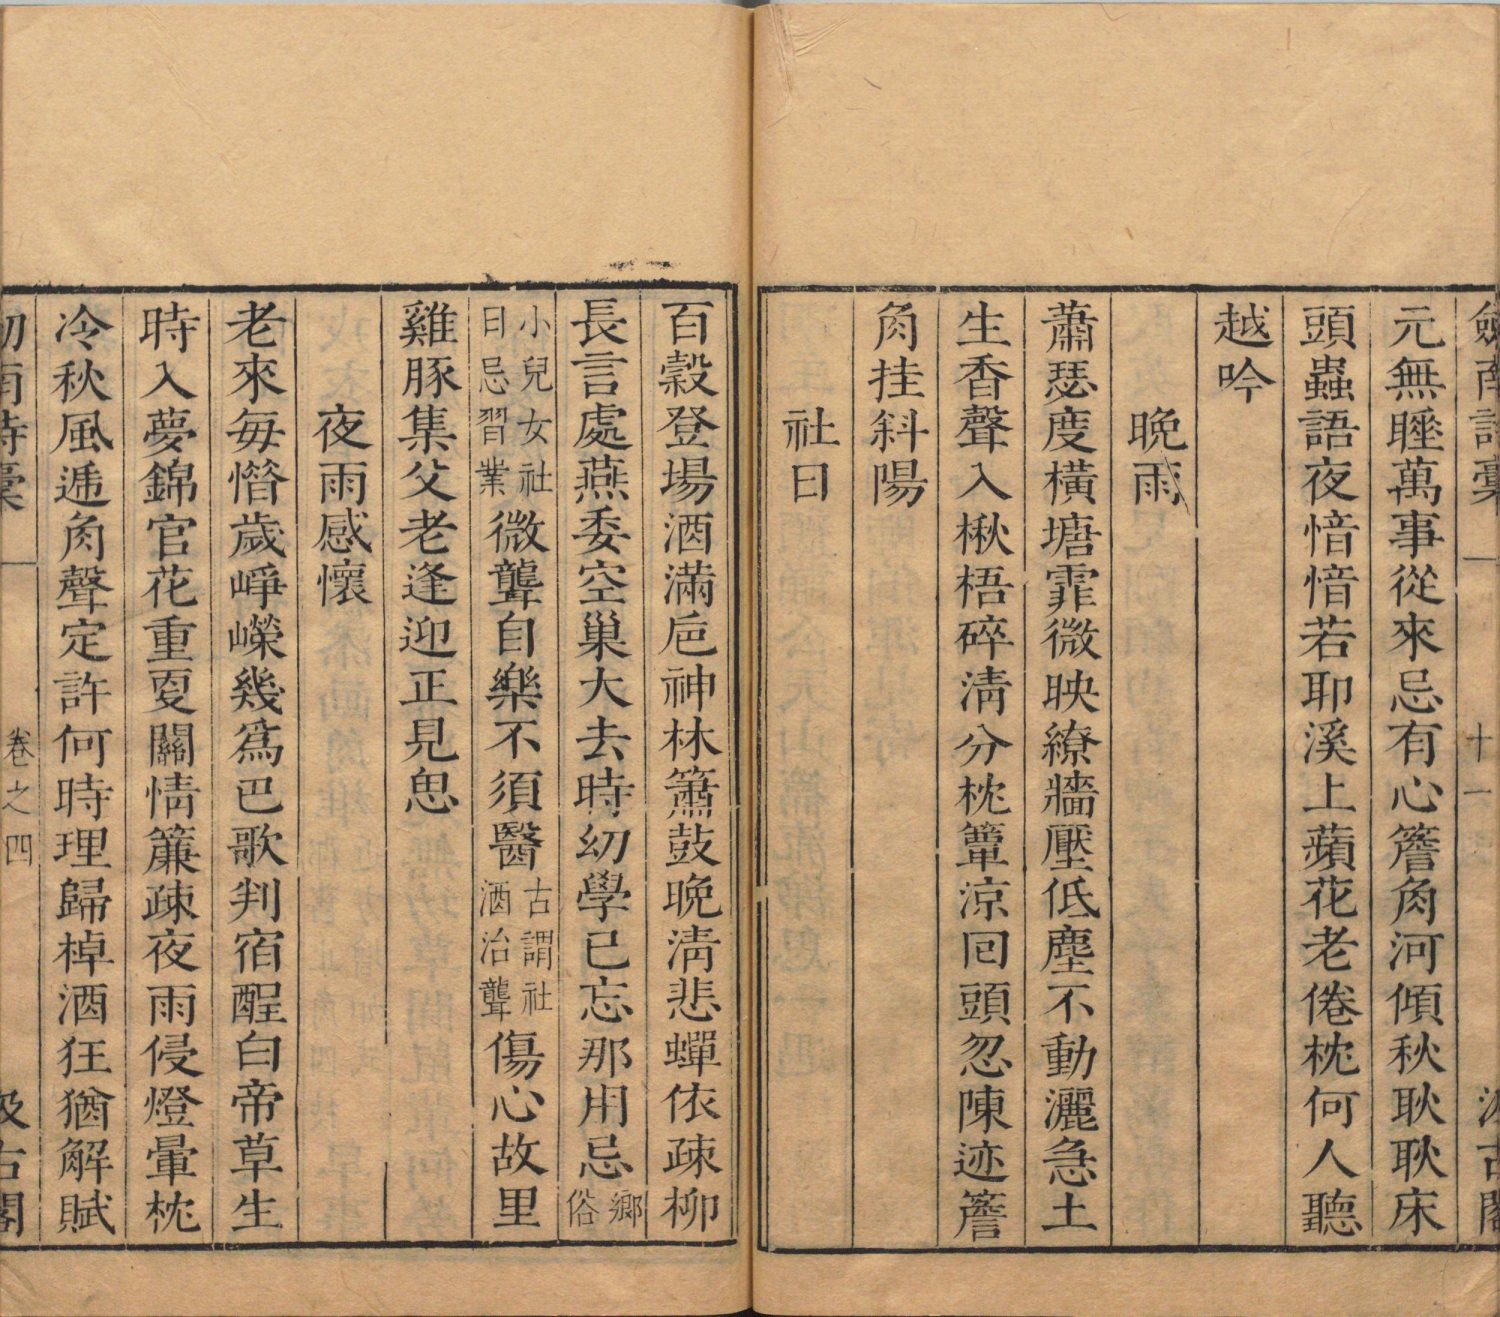 劍南詩稾
十一
汲古閣
元無睡萬事從來忌有心簷角河傾秋耿耿床
頭蟲語夜愔愔若耶溪上蘋花老倦枕何人聽
越吟
晚雨
蕭瑟度橫塘霏微映繚牆壓低塵不動灑急土
生香聲入楸梧碎清分枕簟涼回頭忽陳迹簷
角挂斜陽
社日
百穀登場酒滿巵神林簫鼓晚清悲蟬依疎柳
長言處燕委空巢大去時幼學已忘那用忌鄉俗
小兒女社日忌習業微聾自樂不須醫古謂社酒治聾傷心故里
雞豚集父老逢迎正見思
夜雨感懷
老來每惜歲崢嶸幾爲巴歌判宿酲白帝草生
時入夢錦官花重更關情簾疎夜雨侵燈暈枕
冷秋風遞角聲定許何時理歸棹酒狂猶解賦
劍南詩稾
卷之四
汲古閣